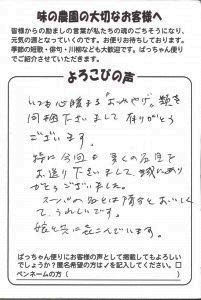 味の農園の大切なお客様へ
皆様からの励ましの言葉が私たちの魂のごちそうになり、
元気の源となっていくのです。お便りお待ちしております。
季節の短歌・俳句・川柳なども大歓迎です。ばっちゃん便り
でご紹介させていただきます。
よろこびの声
いつも心暖まる「おみやげ」類を
同梱下さいまして有りがとう
ございます。
特に今回も多くの品々で
お送り下さいまして、
がとうございました。
スーパの品とは防言とおいしく
て、うれしいです。
娘と共に喜こんでいます。
ばっちゃん便りにお客様の声として掲載してもよろしい
でしょうか？匿名希望の方は✓を記入してください。□
ペンネームの方（　）